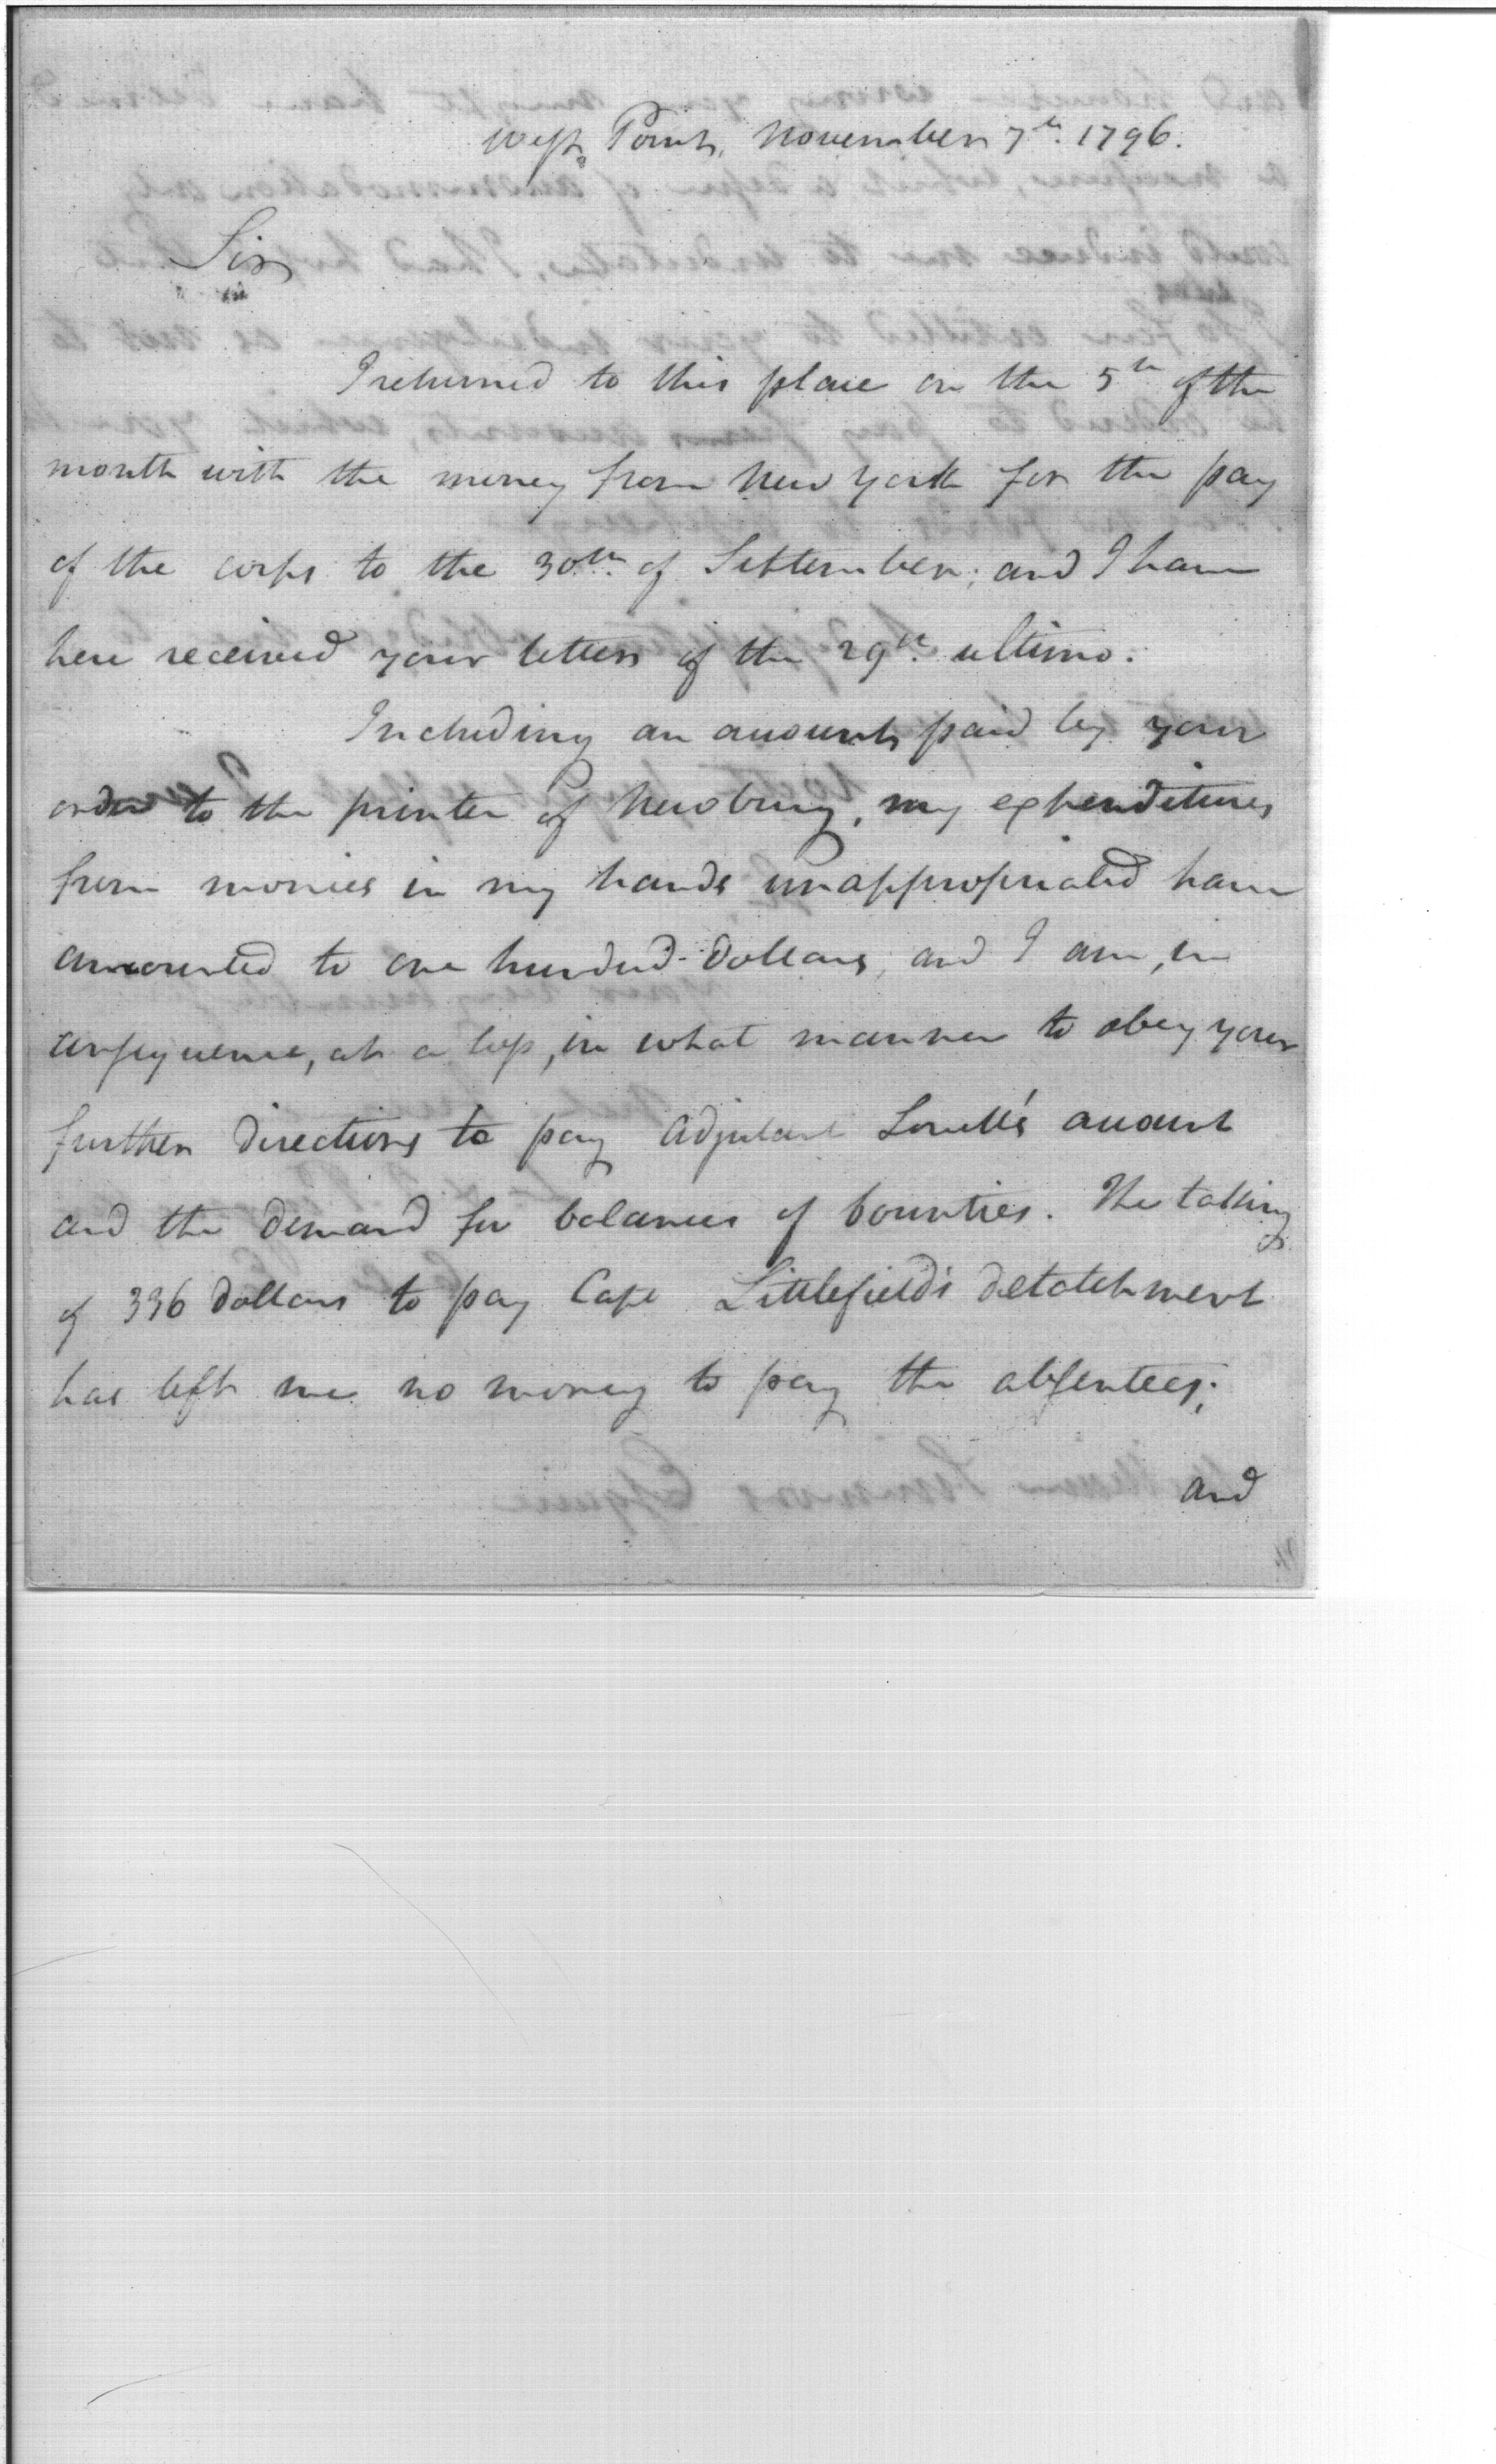 West Point, November 7th. 1796.
Sir
I returned to this place on the 5th of the
month with the money from New York for the pay
of the corps to the 30th. of September; and I have
here received your letters of the 29th. ultimo.
Including an account paid by your
order to the printer of Newburg, my expenditures
from monies in my hands unappropriated have
amounted to one hundred dollars; and I am, in
consequence, at a loss, in what manner to obey your
further directions to pay Adjutant Lovell's account
and the demand for balances of bounties. The taking
of 336 dollars to pay Capt Littlefield's detatchment
has left me no money to pay the absentees;
and